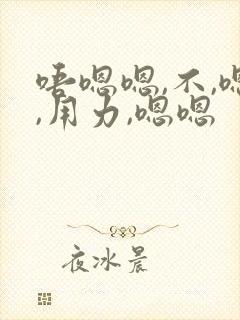 唔嗯嗯,不,嗯
,用力,嗯嗯
夜冰晨